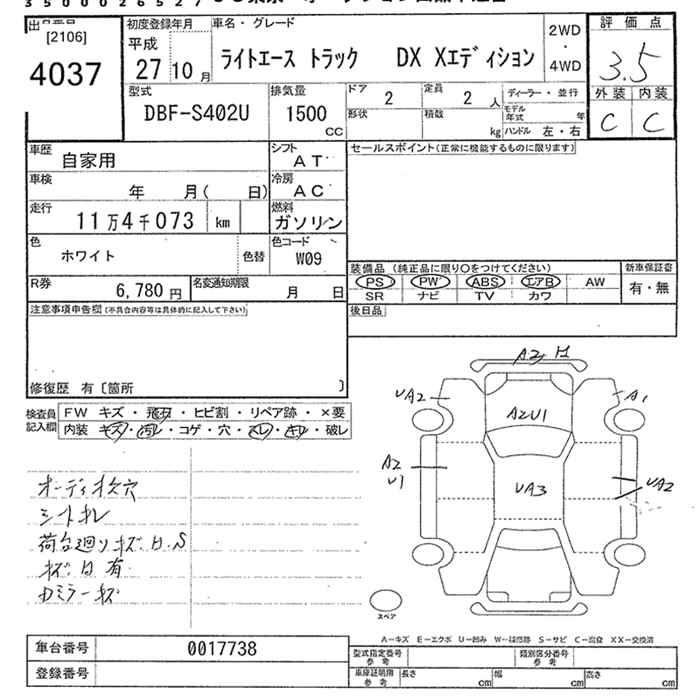 出品番号 初度登録年月 車名・グレード 2WD・4WD 評価点
[2106]
4037
平成 27 10月
ライトエース トラック DX Xエディション
3.5
型式 排気量 ドア 定員 ディーラー・並行 外装 内装
DBF-S402U 1500 CC 2 2人
形状 積載 kg モデル年式 年 ハンドル 左・右
C C
車歴 自家用 シフト AT セールスポイント(正常に機能するものに限ります)
車検 年 月( 日) 冷房 AC
走行 11万4千073 km 燃料 ガソリン
色 ホワイト 色替 色コード W09
装備品 (純正品に限り○をつけてください) 新車保証書
PS PW ABS エアB AW 有・無
SR ナビ TV カワ
R券 6,780円 名変通知期限 月 日
後日品
注意事項申告欄(不具合内容等は具体的に記入して下さい)
修復歴 有〔箇所 〕
検査員記入欄 FW キズ・飛石・ヒビ割・リペア跡・×要
内装 キズ・汚れ・コゲ・穴・スレ・キレ・破レ
A2 H
UA2 A1
A2U1
A2 U1
UA3
UA2
オーディオ欠穴
シートキレ
荷台廻りキズ.H.S
キズ凹有
スペア
A−キズ E−エクボ U−凹み W−補修跡 S−サビ C−腐食 XX−交換済
車台番号 0017738
型式指定番号 参考 類別区分番号 参考
登録番号
車庫証明用 参考 長さ cm 幅 cm 高さ cm